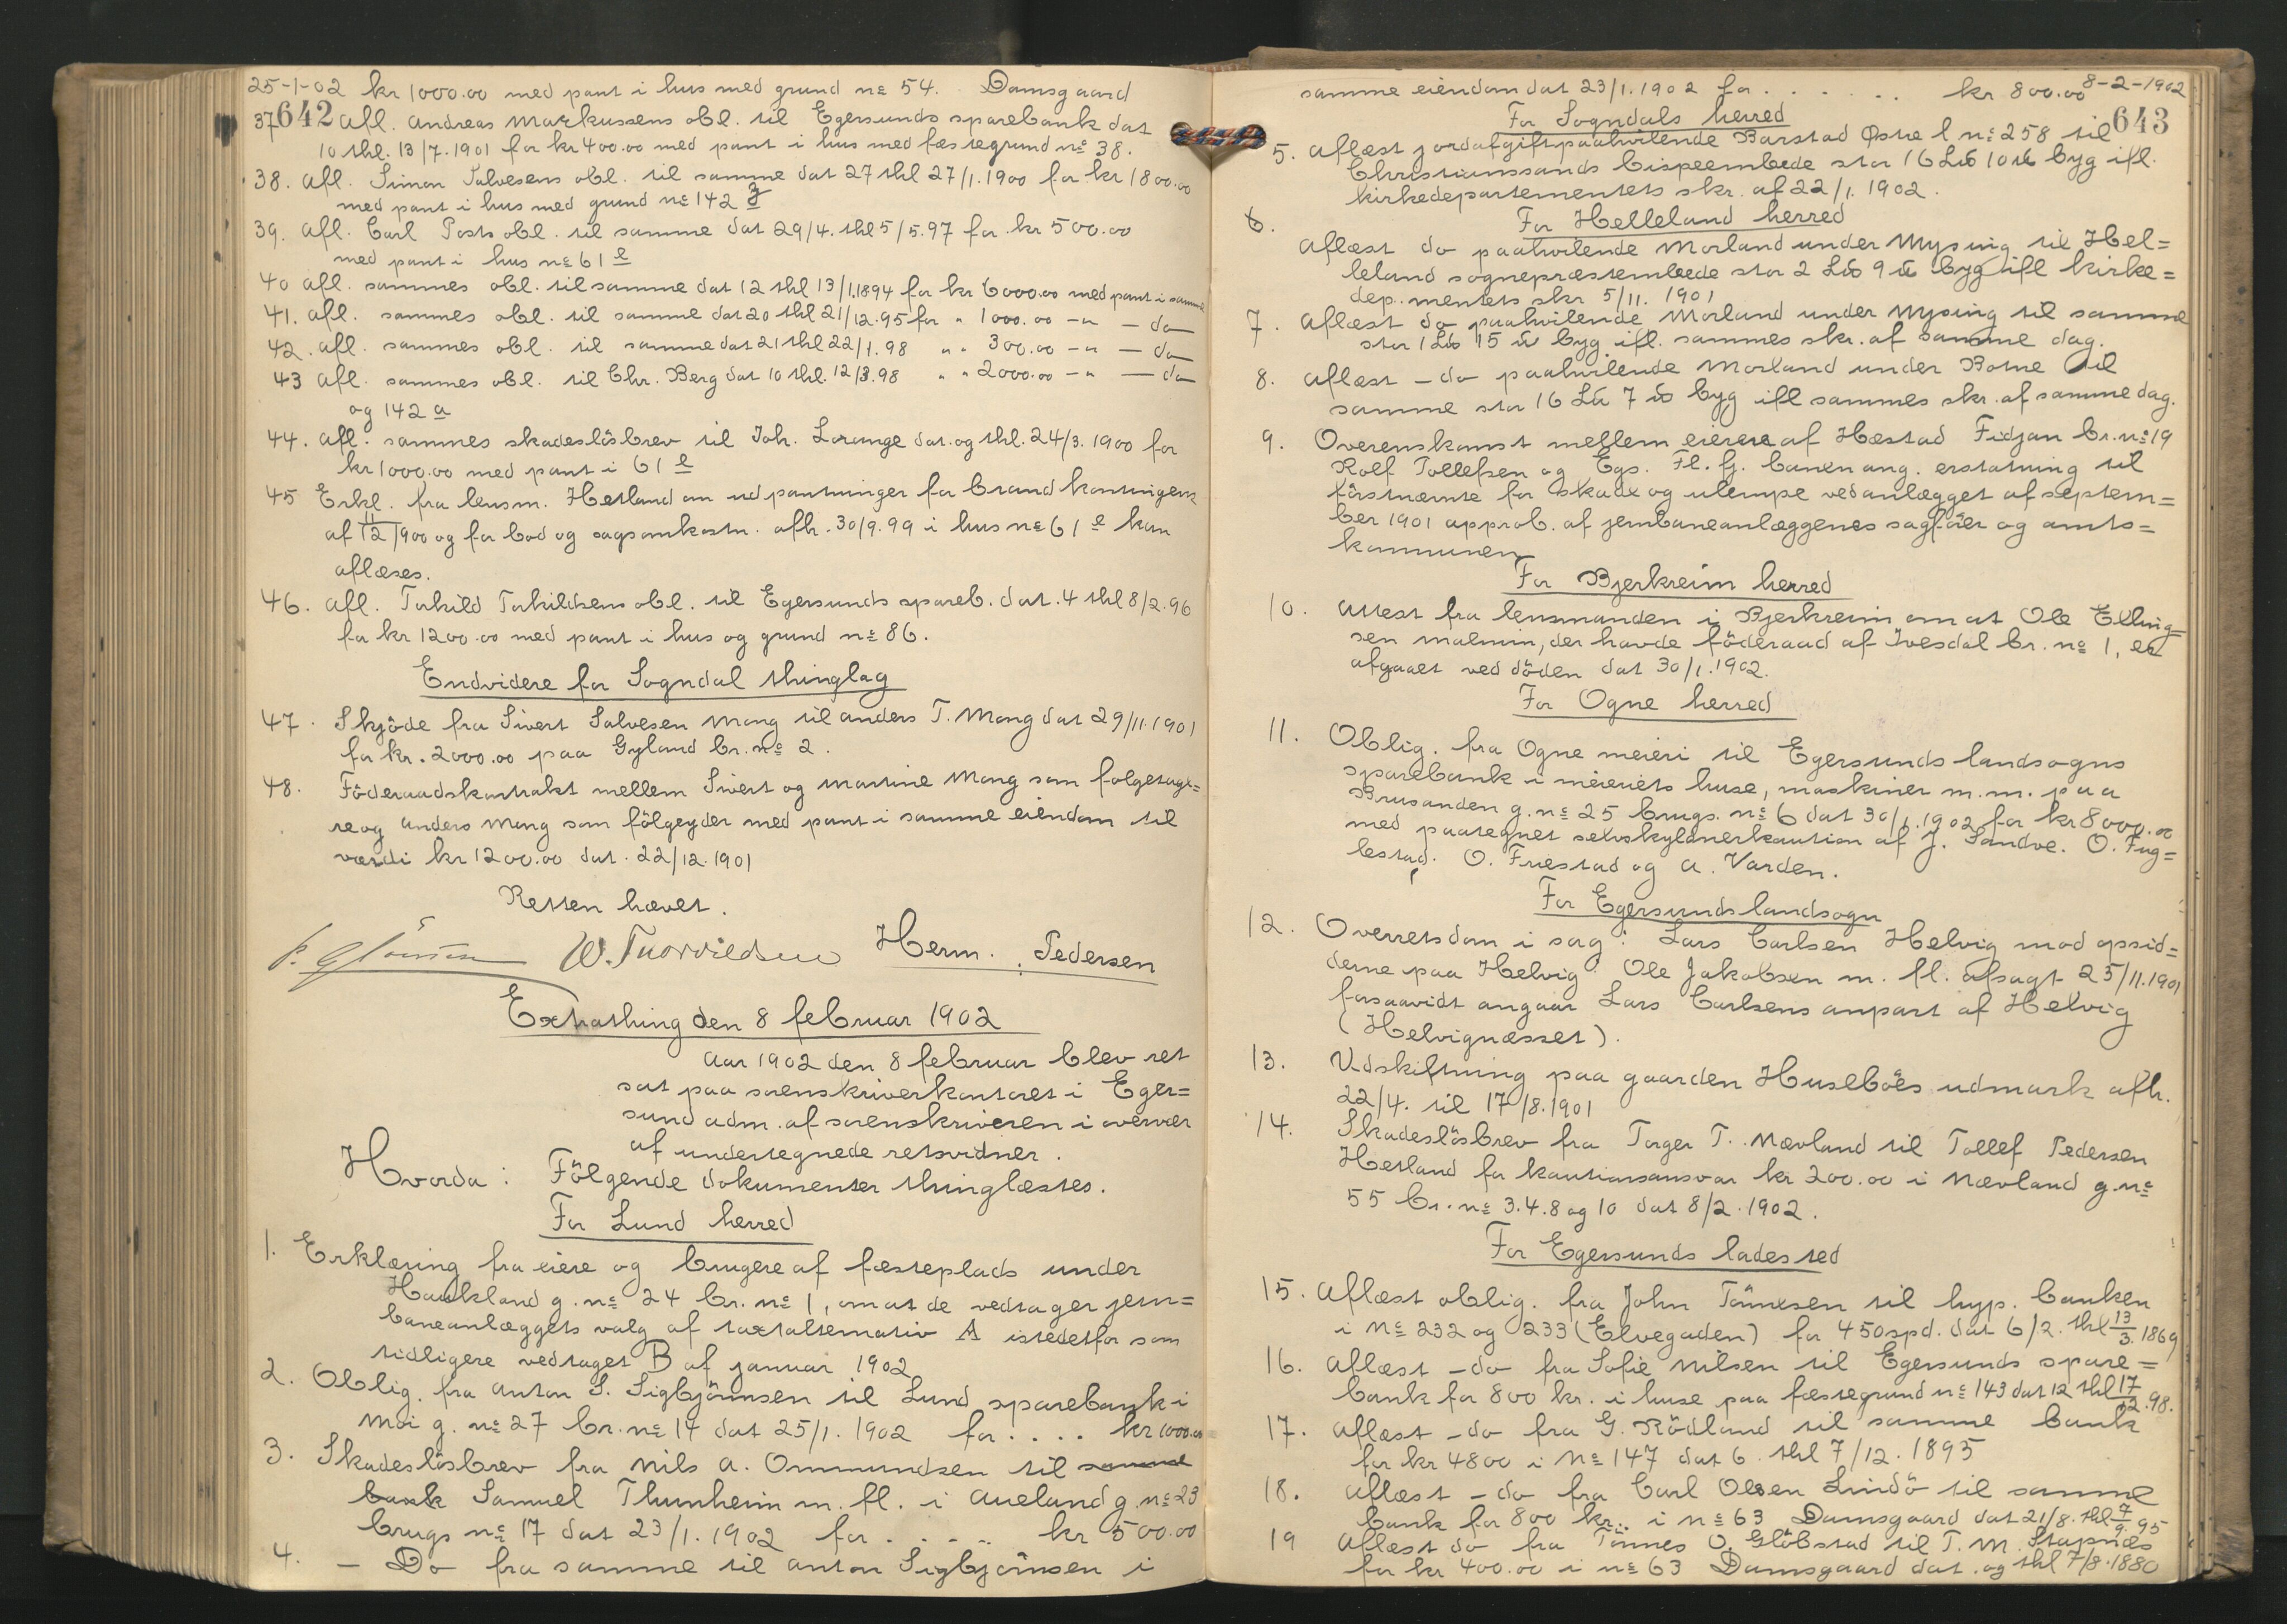 25-1-02 kr 1000.00 med pant i hus med grund nº 54. Damsgaard
642
37 Afl. Andreas Markussens obl. til Egersunds sparebank dat
10 thl. 13/7.1901 for kr 400.00 med pant i hus med fæstegrund nº 38.
38. Afl. Simon Salvesens obl. til samme dat 27 thl 27/1.1900 for kr 1800.00
med pant i hus med grund nº 142
39. Afl. Carl Posts obl. til samme dat 29/4. thl 5/5.97 for kr 500.00
med pant i hus nº 61 e
40 Afl. sammes obl. til samme dat 12 thl 13/1.1894 for kr 6000.00 med pant i samme
41. Afl. sammes obl. til samme dat 20 thl 21/12.95 for " 1000.00 -"- do
42. Afl. sammes obl. til samme dat 21 thl 22/1.98 " " 300.00 -"- do
43 Afl. sammes obl. til Chr. Berg dat 10 thl. 12/3.98 " " 2000.00 -"- do
og 142 a
44. Afl. sammes skadeslösbrev til Joh. Lorange dat. og thl. 24/3.1900 for
kr 1000.00 med pant i 61 e
45 Erkl. fra lensm. Hetland om udpantninger for brandkontingent
af 11/12 1900 og for bod og sagsomkostn. afh. 30/9.99 i hus nº 61 e kan
aflæses.
46. Afl. Torkild Torkildsens obl. til Egersunds spareb. dat. 4 thl 8/2.96
for kr 1200.00 med pant i hus og grund nº 86.
Endvidere for Sogndal thinglag
47. Skjöde fra Sivert Salvesen Mong til Anders T. Mong dat 29/11.1901
for kr. 2000.00 paa Gyland br. nº 2.
48. Föderaadskontrakt mellem Sivert og Martine Mong som følgetage=
re og Anders Mong som fölgeyder med pant i samme eiendom til
værdi kr 1200.00 dat. 22/12.1901
Retten hævet.
W. Thorvildsen Herm. Pedersen
Extrathing den 8 februar 1902
Aar 1902 den 8 februar blev ret
sat paa sorenskriverkontoret i Eger=
sund adm. af sorenskriveren i overvær
af undertegnede retsvidner.
Hvorda: Fölgende dokumenter thinglæstes.
For Lund herred
1. Erklæring fra eiere og brugere af fæsteplads under
Haukland g. nº 24 br. nº 1, om at de vedtager jern=
baneanlæggets valg af taxtalternativ A istedetfor som
tidligere vedtaget B af januar 1902
2. Oblig. fra Anton S. Sigbjörnsen til Lund sparebank i
Moi g. nº 27 br. nº 14 dat 25/1.1902 for .... kr 1000.00
3. Skadeslösbrev fra Nils A. Ommundsen til samme
bank Samuel Thunheim m. fl. i Aueland g. nº 23
brugs nº 17 dat 23/1.1902 for ..... kr 500.00
4. - Do fra samme til Anton Sigbjörnsen i
8-2-1902
samme eiendom dat 23/1.1902 for ...... kr 800.00
643
For Sogndals herred
5. Aflæst jordafgift paahvilende Barstad Østre l nº 258 til
Christianssands bispeembede stor 16 L℔ 10 ℔ byg ifl.
kirkedepartementets skr. af 22/1.1902.
For Helleland herred
6. Aflæst do paahvilende Morland under Mysing til Hel=
leland sognepræstembede stor 2 L℔ 9 ℔ byg ifl kirke=
dep.mentets skr 5/11.1901
7. Aflæst do paahvilende Morland under Mysing til samme
stor 1 L℔ 15 ℔ byg ifl. sammes skr. af samme dag.
8. Aflæst - do paahvilende Morland under Botne til
samme stor 16 L℔ 7 ℔ byg ifl sammes skr. af samme dag.
9. Overenskomst mellem eierere af Hæstad Fidjan br. nº 19
Rolf Tollefsen og Egs. Fl. fj. banen ang. erstatning til
förstnævnte for skade og ulempe ved anlægget af septem=
ber 1901 approb. af jernbaneanlæggenes sagförer og amts=
kommunen
For Bjerkreim herred
10. Attest fra lensmanden i Bjerkreim om at Ole Elling=
sen Malmin, der havde föderaad af Ivesdal br. nº 1, er
afgaaet ved döden dat 30/1.1902.
For Ogne herred
11. Oblig. fra Ogne meieri til Egersunds landsogns
sparebank i meieriets huse, maskiner m.m. paa
Brusanden g. nº 25 brugs. nº 6 dat 30/1.1902 for kr 8000.00
med paategnet selvskyldnerkaution af J. Sandve. O. Fug=
lestad. O. Fuestad og A. Varden.
For Egersunds landsogn
12. Overretsdom i sag: Lars Carlsen Helvig mod opsid=
derne paa Helvig Ole Jakobsen m. fl. afsagt 25/11.1901
forsaavidt angaar Lars Carlsens anpart af Helvig
(Helvignæsset).
13. Udskiftning paa gaarden Huseböes udmark afh.
22/4. til 17/8.1901
14. Skadeslösbrev fra Torger T. Mævland til Tollef Pedersen
Hetland for kautionsansvar kr 200.00 i Mævland g. nº
55 br. nº 3.4.8 og 10 dat 8/2.1902.
For Egersunds ladested
15. Aflæst oblig. fra John Tönnesen til hyp. banken
i Nº 232 og 233 (Elvegaden) for 450 spd. dat 6/2. thl 13/3.1869
16. Aflæst - do fra Sofie Nilsen til Egersunds spare=
bank for 800 kr. i huse paa fæstegrund nº 143 dat 12 thl 17/12.98.
17. Aflæst - do fra G. Rödland til samme bank
for kr 4800 i Nº 147 dat 6 thl 7/12.1895
18. Aflæst - do fra Carl Olsen Lindö til samme
bank for 800 kr. i nº 63 Damsgaard dat 21/8. thl 7/9 95
19 Aflæst do fra Tönnes O. Glöbstad til T. M. Stapnæs
for kr 400.00 i nº 63 Damsgaard dat. og thl 7/8.1880